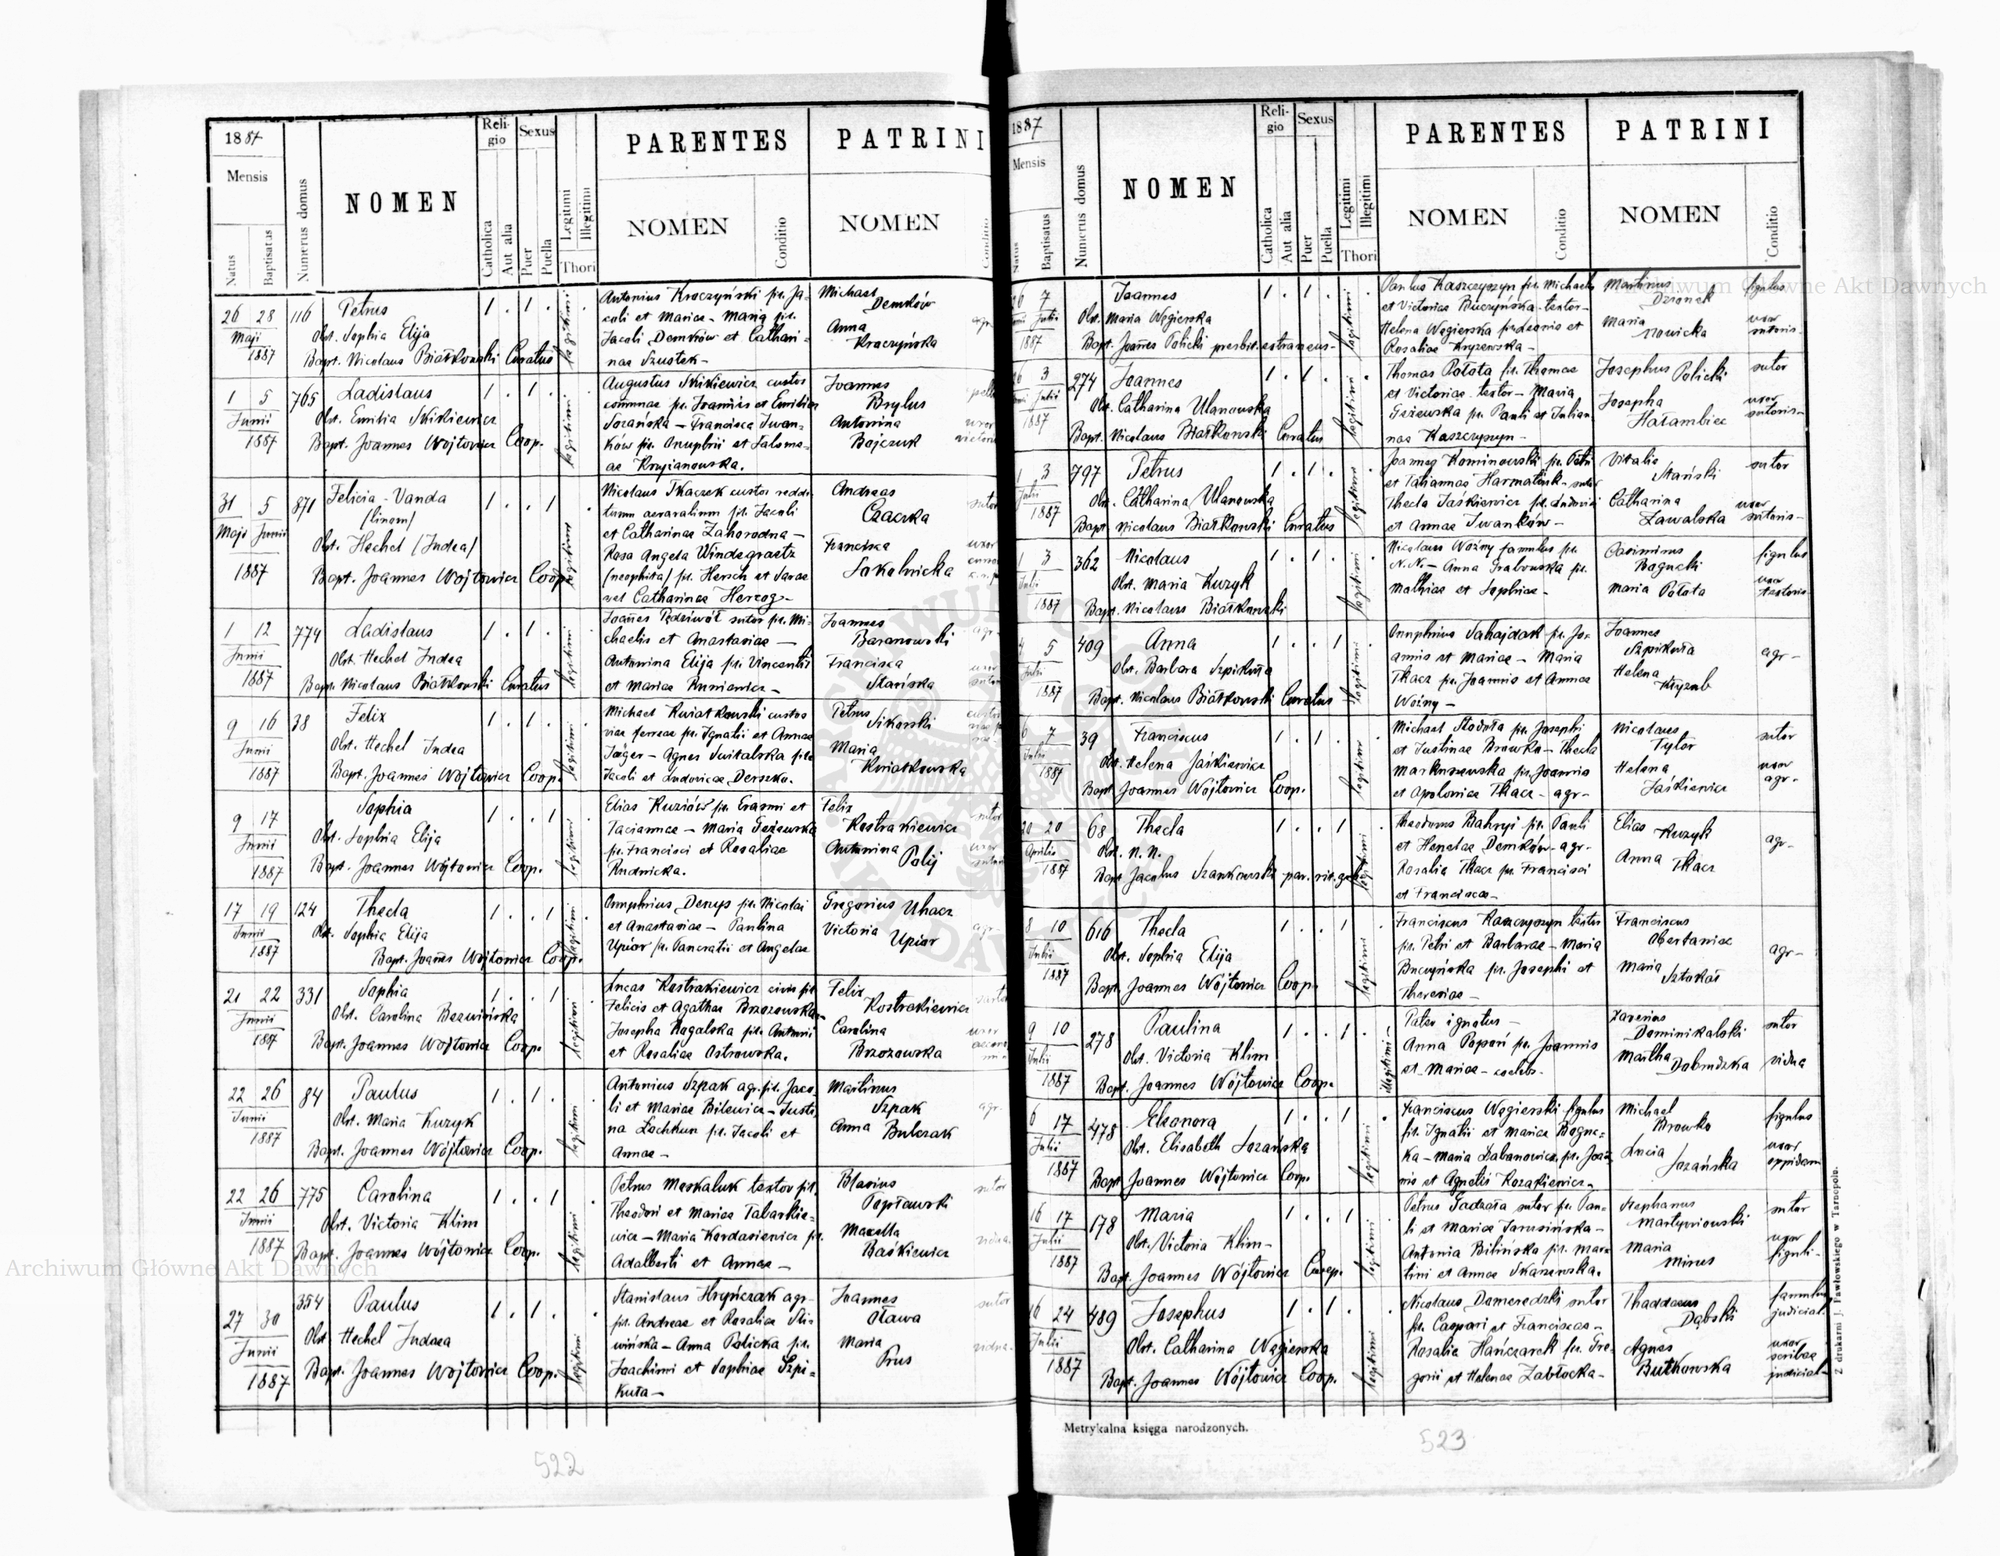 1887
Mensis
Natus
Baptisatus
Numerus domus
NOMEN
Religio
Catholica
Aut alia
Sexus
Puer
Puella
Legitimi
Illegitimi
Thori
PARENTES
NOMEN
Conditio
PATRINI
NOMEN
26 28 116 Petrus 1 . 1 .
Maji
1887
Obst. Sophia Elija
Bapt. Nicolaus Białkowski Curatus
legitimi
Antonius Kraczyński pr. Ja-
cobi et Mariae - Maria pr.
Jacobi Demków et Cathari-
nae Szustek -
Michael
Demków
Anna
Kraczyńska
1 5 765 Ladislaus 1 . 1 .
Junii
1887
Obst. Emilia Skikiewicz
Bapt. Joannes Wójtowicz Coop.
legitimi
Augustus Skikiewicz custos
comunae pr. Joannis et Emiliae
Sozańska - Francisca Iwan-
ków pr. Onuphrii et Salome-
ae Kryjanowska.
Joannes
Brylus
Antonina
Bajczuk
31 5 871 Felicia - Vanda 1 . . 1
Maji Junii
1887
/binom/
Obst. Hechel /Judea/
Bapt. Joannes Wójtowicz Coop.
legitimi
Nicolaus Tkaczek custos reddi-
tuum aerarialium pr. Jacobi
et Catharinae Zahorodna -
Rosa Angela Windegraetz
/neophita/ pr. Hersch et Sarae
vel Catharinae Herzog -
Andreas
Czaczka
Francisca
Sakalnicka
1 12 774 Ladislaus 1 . 1 .
Junii
1887
Obst. Hechel Judea
Bapt. Nicolaus Białkowski Curatus
legitimi
Joannes Pędziwół sutor pr. Mi-
chaelis et Anastasiae -
Antonina Elija pr. Vincentii
et Mariae Runiewicz -
Joannes
Baranowski
Francisca
Stańska
9 16 38 Felix 1 . 1 .
Junii
1887
Obst. Hechel Judea
Bapt. Joannes Wójtowicz Coop.
legitimi
Michael Kwiatkowski custos
viae ferreae pr. Ignatii et Annae
Jäger - Agnes Switalska pr.
Jacobi et Ludovicae Derszko.
Petrus
Sikorski
Maria
Kwiatkowska
9 17 Sophia 1 . . 1
Junii
1887
Obst. Sophia Elija
Bapt. Joannes Wójtowicz Coop.
legitimi
Elias Kuziów pr. Erasmi et
Taciannae - Maria Geżewska
pr. Francisci et Rosaliae
Rudnicka.
Felix
Kostrakiewicz
Antonina
Polij
17 19 124 Thecla 1 . . 1
Junii
1887
Obst. Sophia Elija
Bapt. Joannes Wójtowicz Coop.
legitimi
Onuphrius Denys pr. Nicolai
et Anastasiae - Paulina
Upiór pr. Pancratii et Angelae
Gregorius Uhacz
Victoria
Upiór
21 22 331 Sophia 1 . . 1
Junii
1887
Obst. Carolina Bezwińska
Bapt. Joannes Wójtowicz Coop.
legitimi
Lucas Kostrakiewicz civis pr.
Felicis et Agathae Brzozowska -
Josepha Rogalska pr. Antonii
et Rosaliae Ostrowska.
Felix
Kostrakiewicz
Carolina
Brzozowska
22 26 84 Paulus 1 . 1 .
Junii
1887
Obst. Maria Kuzyk
Bapt. Joannes Wójtowicz Coop.
legitimi
Antonius Szpak agr. pr. Jaco-
bi et Mariae Bilewicz - Justi-
na Lochkun pr. Jacobi et
Annae -
Martinus
Szpak
Anna Bulczak
22 26 775 Carolina 1 . . 1
Junii
1887
Obst. Victoria Klim
Bapt. Joannes Wójtowicz Coop.
legitimi
Petrus Maskaluk textor pr.
Theodori et Mariae Tabaskie-
wicz - Maria Kordasiewicz pr.
Adalberti et Annae -
Blasius
Popławski
Marcella
Baśkiewicz
27 30 354 Paulus 1 . 1 .
Junii
1887
Obst. Hechel Judaea
Bapt. Joannes Wójtowicz Coop.
legitimi
Stanislaus Hryńczak agr.
pr. Andreae et Rosaliae Sli-
wińska - Anna Policka pr.
Joachimi et Sophiae Szpi-
kuła -
Joannes
Oława
Maria
Prus
522
1887
Mensis
Natus
Baptisatus
Numerus domus
NOMEN
Religio
Catholica
Aut alia
Sexus
Puer
Puella
Legitimi
Illegitimi
Thori
PARENTES
NOMEN
Conditio
PATRINI
NOMEN
Conditio
7 Joannes 1 . 1 .
Julii
1887
Obst. Maria Węgierska
Bapt. Joannes Policki presbit. extraneus -
legitimi
Paulus Kaszczyszyn pr. Michaelis
et Victoriae Buczyńska - textor -
Helena Węgierska pr. Joannis et
Rosaliae Kryzewska -
Martinus
Dzionek
figulus
Maria
Nowicka
uxor
sutoris -
3 274 Joannes 1 . 1 .
Julii
1887
Obst. Catharina Ulanowska
Bapt. Nicolaus Białkowski Curatus
legitimi
Thomas Połota pr. Thomae
et Victoriae - textor - Maria
Geżewska pr. Pauli et Julian-
nae Kaszczyszyn -
Josephus Policki
sutor
Josepha
Hałambiec
uxor
sutoris -
1 3 797 Petrus 1 . 1 .
Julii
1887
Obst. Catharina Ulanowska
Bapt. Nicolaus Białkowski Curatus
legitimi
Joannes Kominowski pr. Petri
et Tatiannae Harmatiuk - sutor
Thecla Jaśkiewicz pr. Ludovici
et Annae Iwanków -
Vitalis
Stański
sutor
Catharina
Zawalska
uxor
sutoris -
1 3 362 Nicolaus 1 . 1 .
Julii
1887
Obst. Maria Kuzyk
Bapt. Nicolaus Białkowski
legitimi
Nicolaus Woźny famulus pr.
N.N. - Anna Grabowska pr.
Mathiae et Sophiae -
Casimirus
Bogucki
figulus
Maria Połota
uxor
textoris
4 5 409 Anna 1 . . 1
Julii
1887
Obst. Barbara Szpikuła
Bapt. Nicolaus Białkowski Curatus
legitimi
Onuphrius Sahajdak pr. Jo-
annis et Mariae - Maria
Tkacz pr. Joannis et Annae
Woźny -
Joannes
Szpikuła
agr -
Helena
6 7 39 Franciscus 1 . 1 .
Julii
1887
Obst. Helena Jaśkiewicz
Bapt. Joannes Wójtowicz Coop.
legitimi
Michael Stodoła pr. Josephi
et Justinae Browko - Thecla
Markuszewska pr. Joannis
et Apoloniae Tkacz - agr -
Nicolaus
Tytor
sutor
Helena
Jaśkiewicz
uxor
agr -
20 20 68 Thecla 1 . . 1
Aprilis
1887
Obst. N.N.
Bapt. Jacobus Szankowski par. rit. gr.
legitimi
Theodorus Bahryj pr. Pauli
et Henelae Demków - agr -
Rosalia Tkacz pr. Francisci
et Franciscae -
Elias Kuzyk
agr -
Anna Tkacz
8 10 616 Thecla 1 . . 1
Julii
1887
Obst. Sophia Elija
Bapt. Joannes Wójtowicz Coop.
legitimi
Franciscus Kaszczyszyn textor
pr. Petri et Barbarae - Maria
Buczyńska pr. Josephi et
Theresiae -
Franciscus
Obertaniec
agr -
Maria
9 10 278 Paulina 1 . . 1
Julii
1887
Obst. Victoria Klim
Bapt. Joannes Wójtowicz Coop.
illegitimi
Pater ignotus -
Anna Popoń pr. Joannis
et Mariae - coelebs -
Xaverius
Dominikalski
sutor
Martha
Dobrudzka
vidua
6 17 478 Eleonora 1 . . 1
Julii
1887
Obst. Elisabeth Sozańska
Bapt. Joannes Wójtowicz Coop.
legitimi
Franciscus Węgierski figulus
pr. Ignatii et Mariae Bogue-
ka - Maria Łabanowicz pr. Joan-
nis et Agnetis Kozakiewicz -
Michael
Browko
figulus
Lucia
Sozańska
uxor
oppidani
16 17 178 Maria 1 . . 1
Julii
1887
Obst. Victoria Klim -
Bapt. Joannes Wójtowicz Coop.
legitimi
Petrus Gadzała sutor pr. Pau-
li et Mariae Jarusińska -
Antonia Bilińska pr. Mar-
tini et Annae Skaszewska.
Stephanus
Martyniowski
sutor
Maria
Mines
uxor
figuli -
16 24 489 Josephus 1 . 1 .
Julii
1887
Obst. Catharina Węgierska
Bapt. Joannes Wójtowicz Coop.
legitimi
Nicolaus Domeredzki sutor
pr. Caspari et Franciscae -
Rosalia Hańczarek pr. Gre-
gorii et Helenae Zabłocka -
Thaddaeus
Dąbski
famulus
judicial.
Agnes
Butkowska
uxor
scribae
judicial -
Metrykalna księga narodzonych.
Z drukarni J. Pawłowskiego w Tarnopolu.
523
Archiwum Główne Akt Dawnych
Archiwum Główne Akt Dawnych
ARCHIWUM GŁÓWNE AKT DAWNYCH